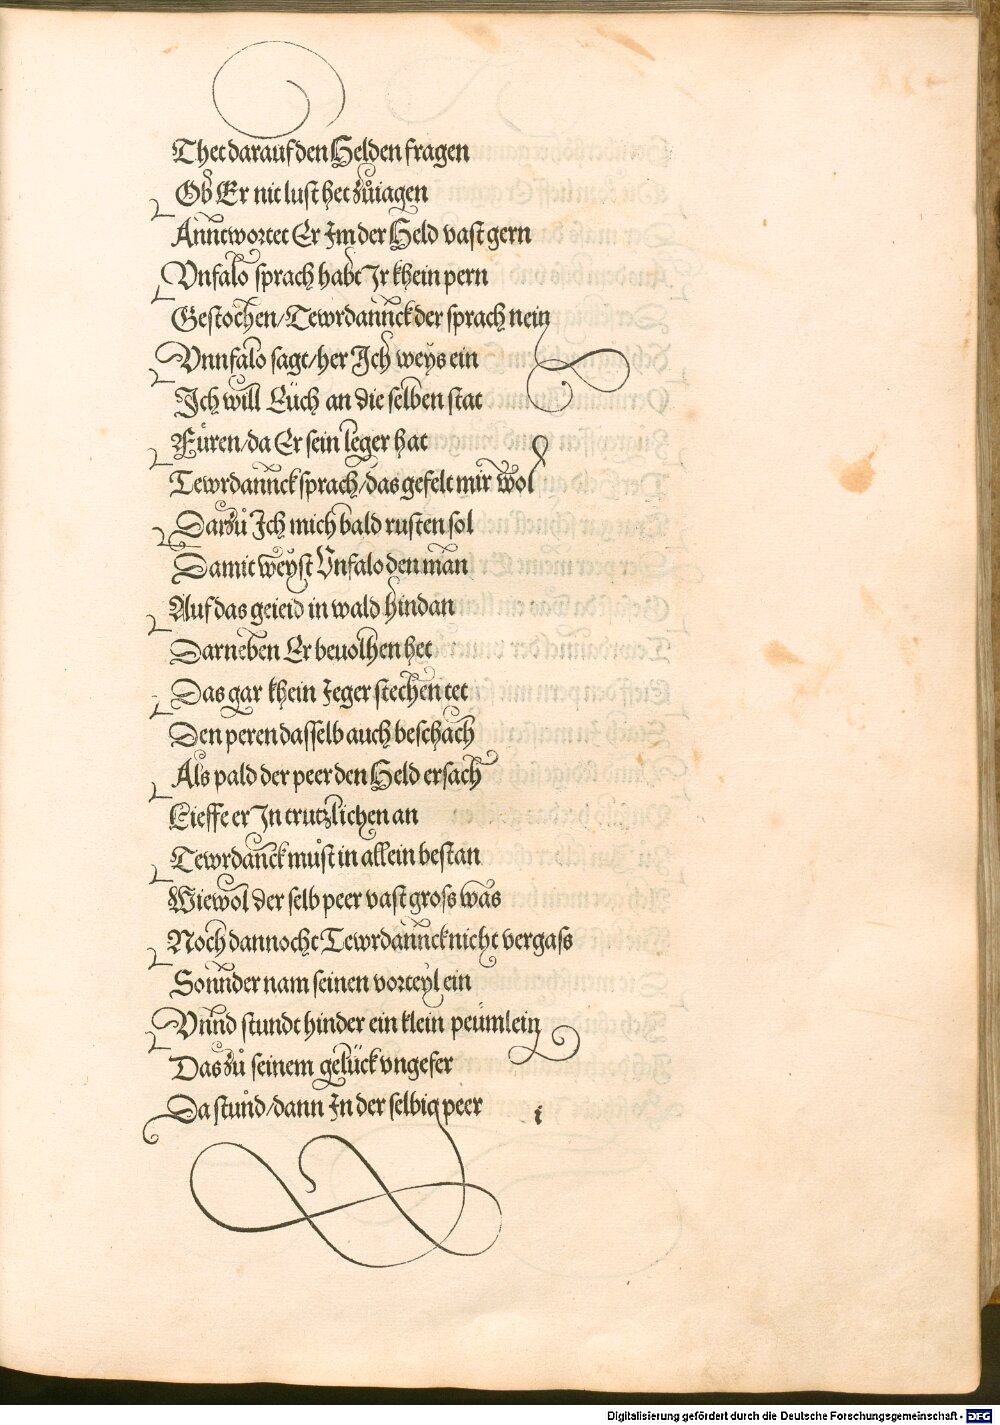 Thet darauf den Helden fragen
Ob Er nit lust het zůiagen
Anntwortet Er Im der Held vast gern
Vnfalo sprach habt Ir khein pern
Gestochen/Tewrdannck der sprach nein
Vnnfalo sagt/her Ich weys ein
Ich will Eüch an die selben stat
Füren/da Er sein leger hat
Tewrdannck sprach/das gefelt mir wol
Darzů Ich mich bald rusten sol
Damit weyst Vnfalo den man
Auf das geieid in wald hindan
Darneben Er beuolhen het
Das gar khein Jeger stechen tet
Den peren dasselb auch beschach
Als pald der peer den Held ersach
Lieffe er In trutzlichen an
Tewrdanck můst in allein bestan
Wiewol der selb peer vast gross was
Noch dannocht Tewrdannck nicht vergass
Sonnder nam seinen vorteyl ein
Vnnd stundt hinder ein klein peümlein
Das zů seinem gelück vngefer
Da stůnd/dann In der selbig peer
i
Digitalisierung gefördert durch die Deutsche Forschungsgemeinschaft - DFG